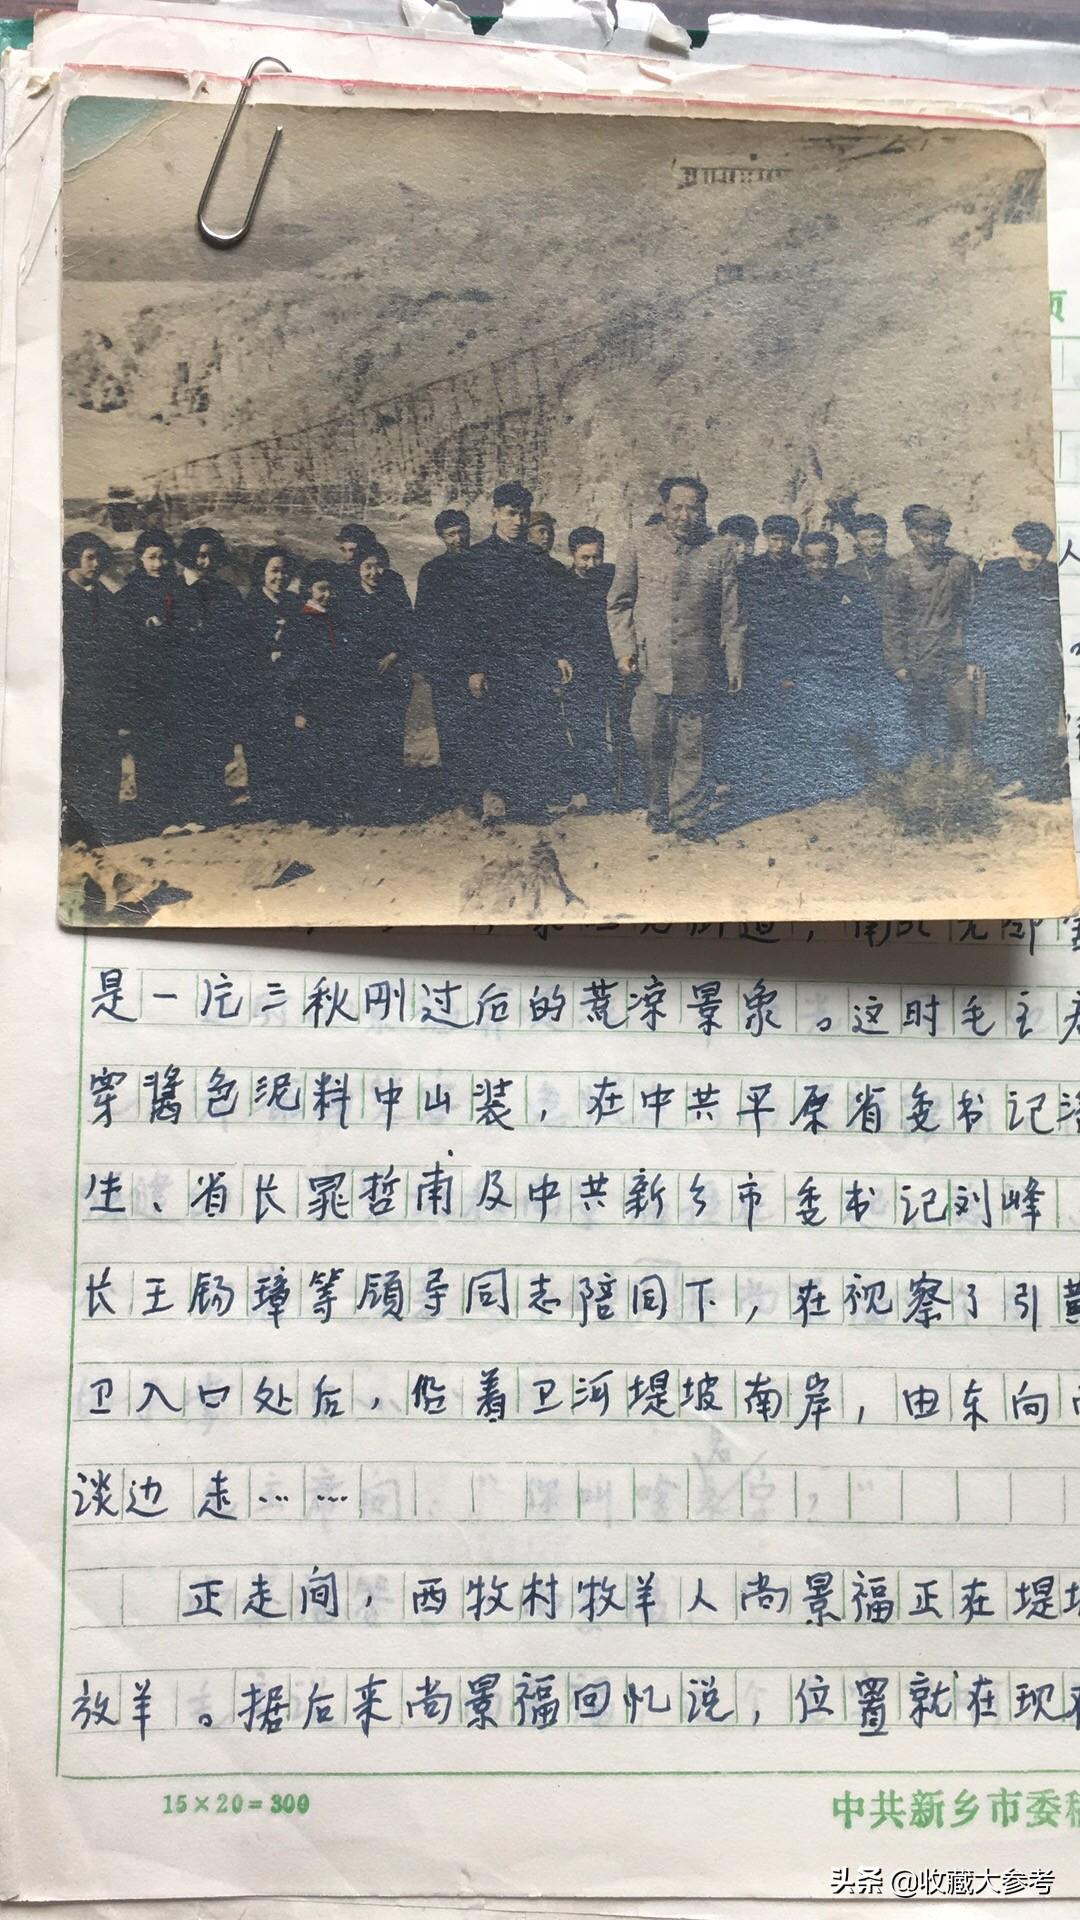 页
人
是一片三秋刚过后的荒凉景象。这时毛主席
穿酱色泥料中山装，在中共平原省委书记潘
生、省长晁哲甫及中共新乡市委书记刘峰、
长王锡璋等领导同志陪同下，在视察了引黄
卫入口处后，沿着卫河堤坡南岸，由东向
谈边走……
正走间，西牧村牧羊人尚景福正在堤坡
放羊。据后来尚景福回忆说，位置就在现在
15×20=300
中共新乡市委稿
头条 @收藏大参考